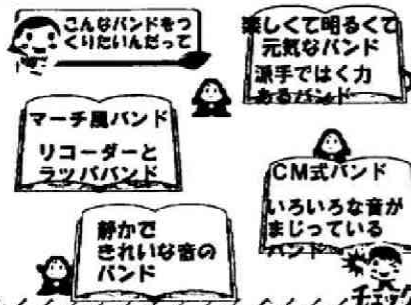 こんなバンドをつ
くりたいんだって
楽しくて明るくて
元気なバンド
派手ではく力
あるバンド
マーチ風バンド
リコーダーと
ラッパバンド
CM式バンド
いろいろな音が
まじっている
バンド
静かで
きれいな音の
バンド
チェック